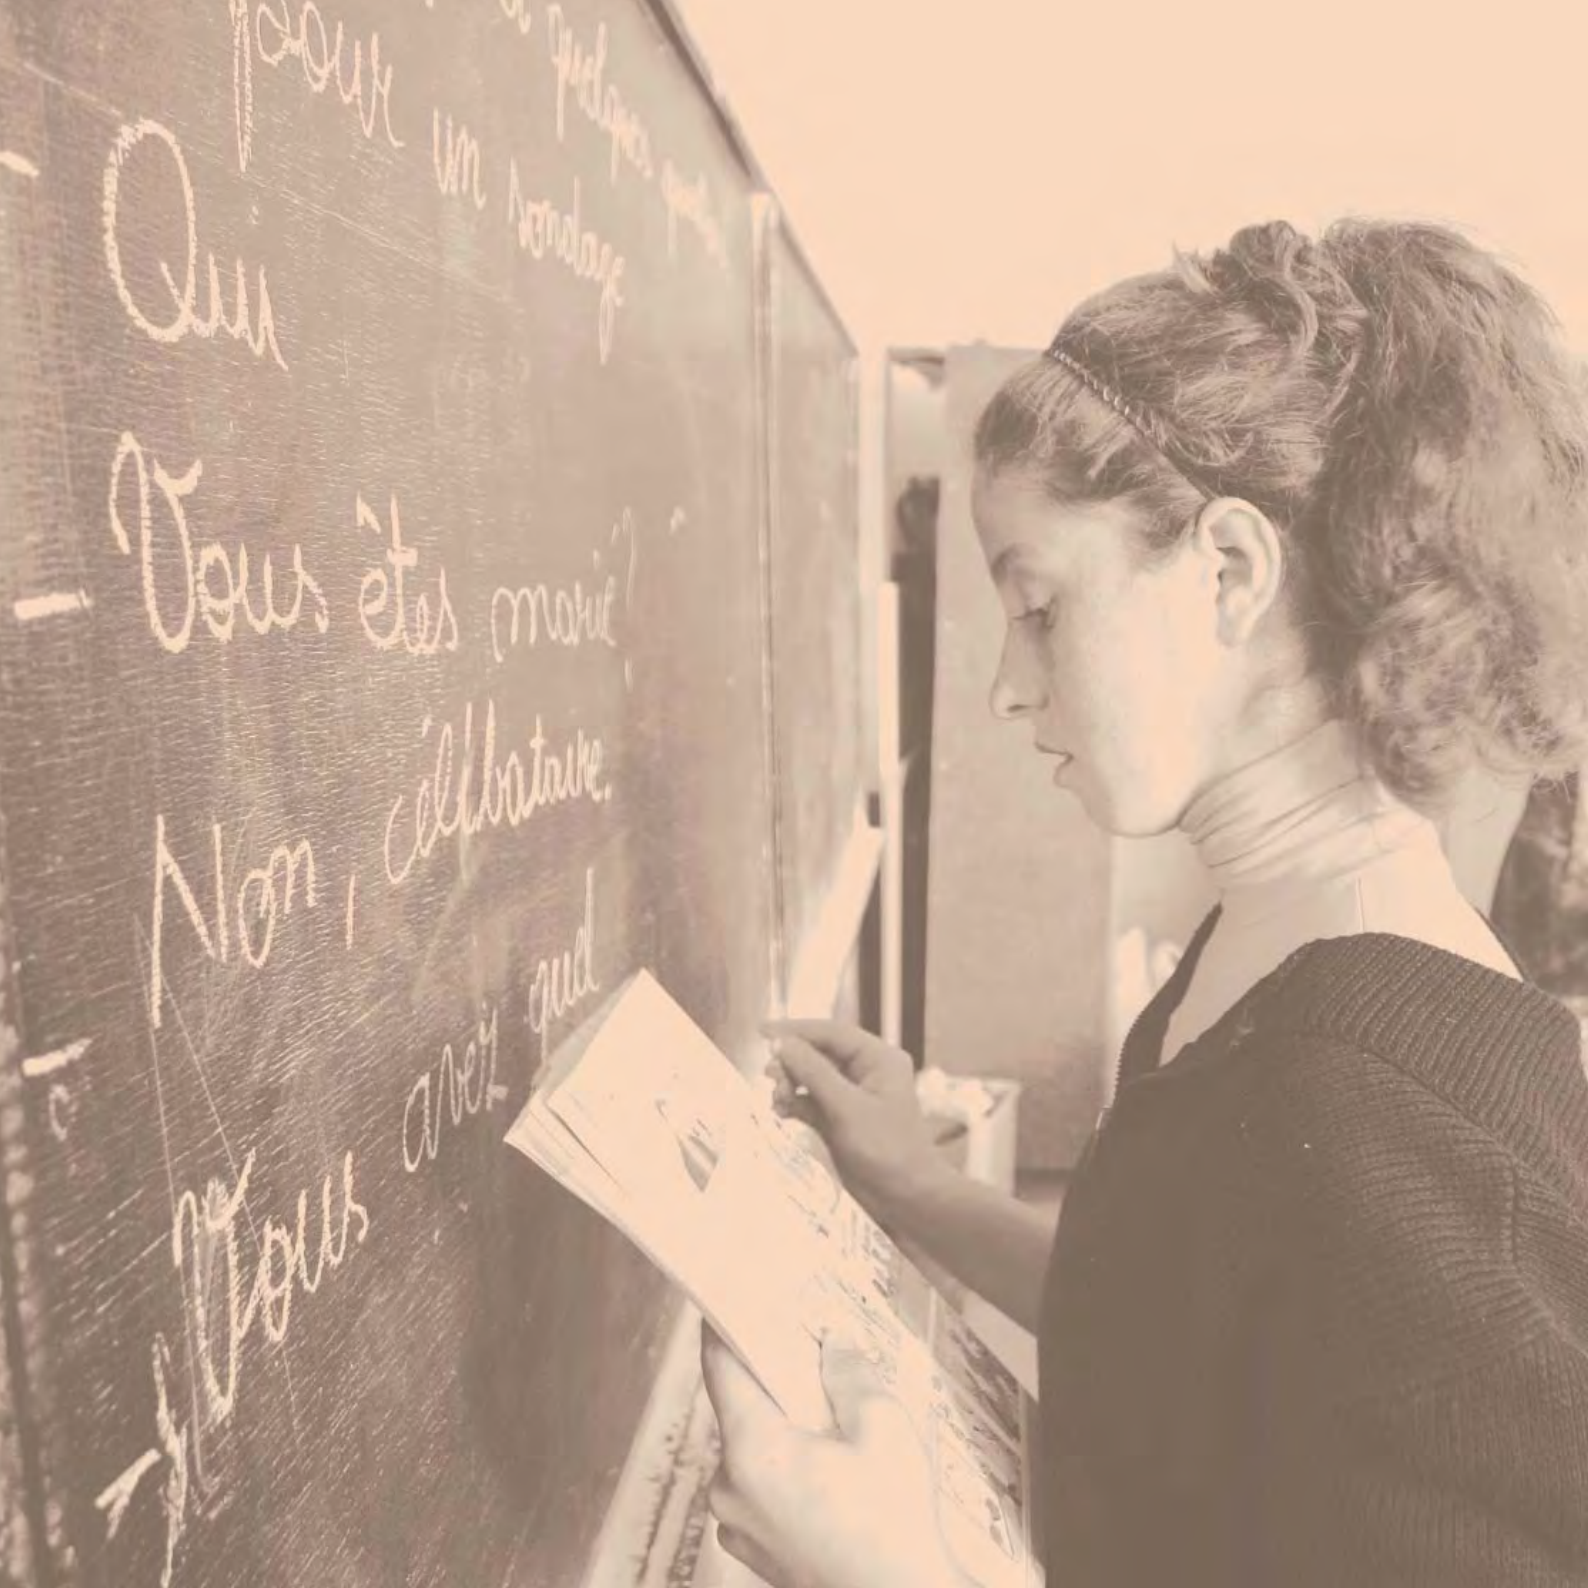 quelques
pour un sondage
Qui
Vous êtes marié?
Non, célibataire.
Vous avez quel